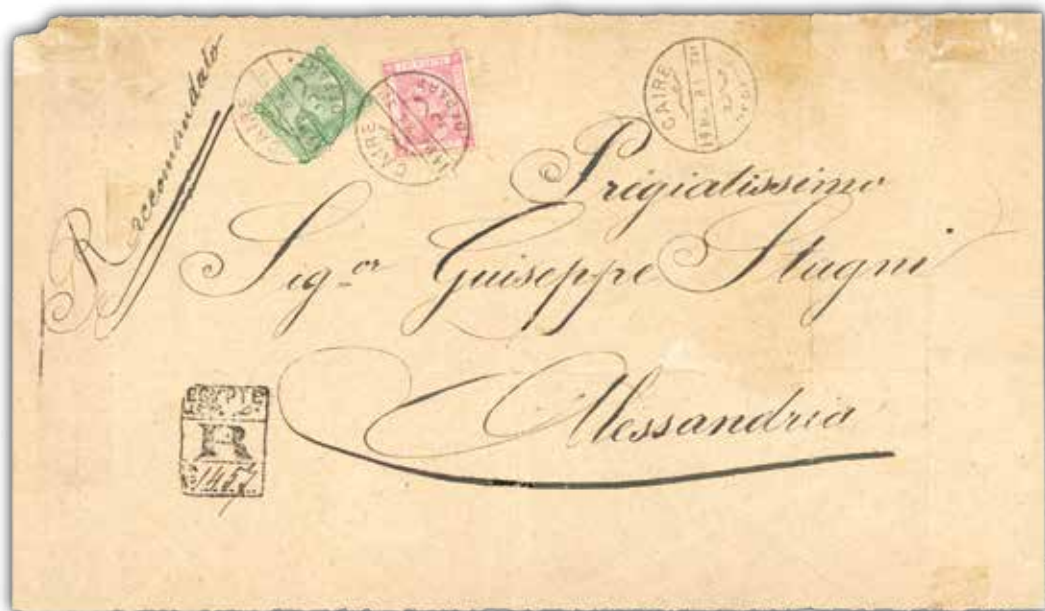 Raccomandato
CAIRE
DEPART
CAIRE
DEPART
CAIRE
Prigiatissimo
Sig.or Guiseppe Stagni
Alessandria
EGYPTE
R
No 1457